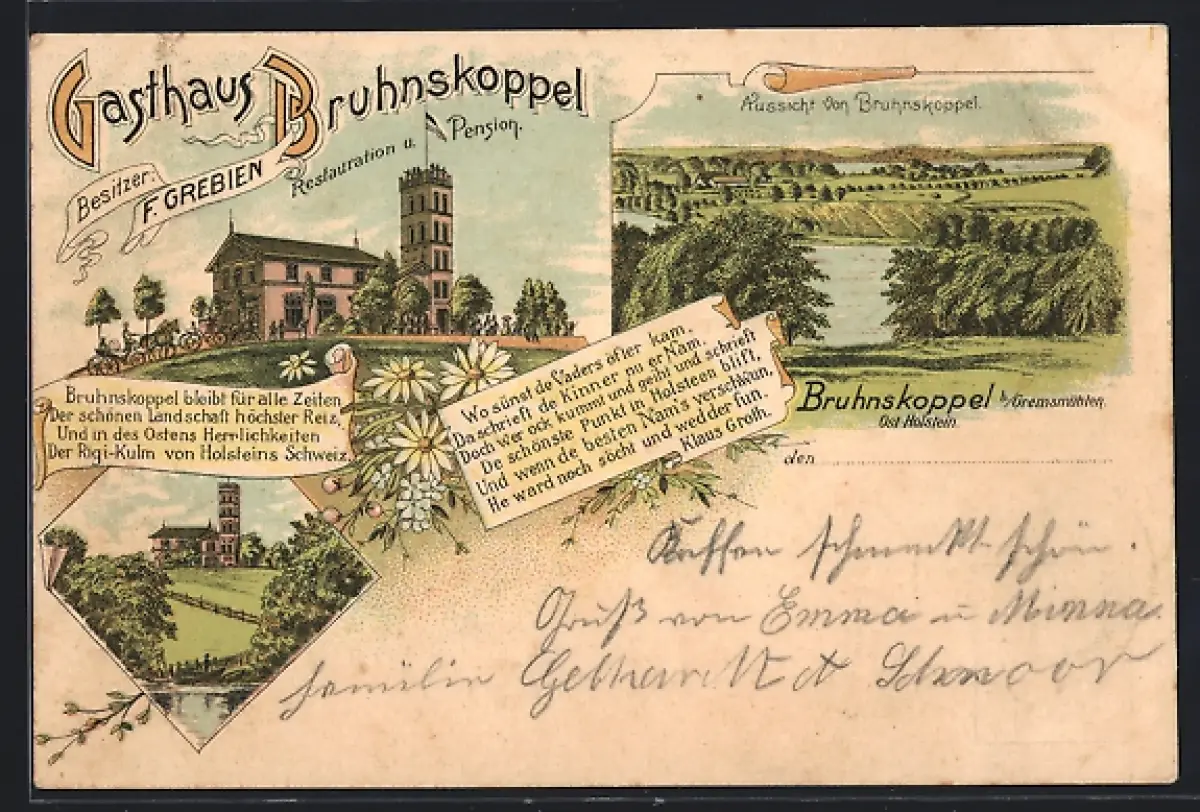 Gasthaus Bruhnskoppel
Restauration u. Pension.
Besitzer:
F. GREBIEN
Aussicht von Bruhnskoppel.
Bruhnskoppel bleibt für alle Zeiten
Der schönen Landschaft höchster Reiz,
Und in des Ostens Herrlichkeiten
Der Rigi-Kulm von Holsteins Schweiz.
Wo sünst de Vaders öfter kam,
Da schrieft de Kinner nu er Nam.
Doch wer ock kummt und geiht und schrieft
De schönste Punkt in Holsteen blift,
Und wenn de besten Nam's verschwun,
He ward noch söcht und wedder fun.
Klaus Groth.
Bruhnskoppel b/Gremsmühlen.
Ost Holstein
den
Kaffee schmeckt schön.
Gruß von Emma u Minna
Familie Schnoor